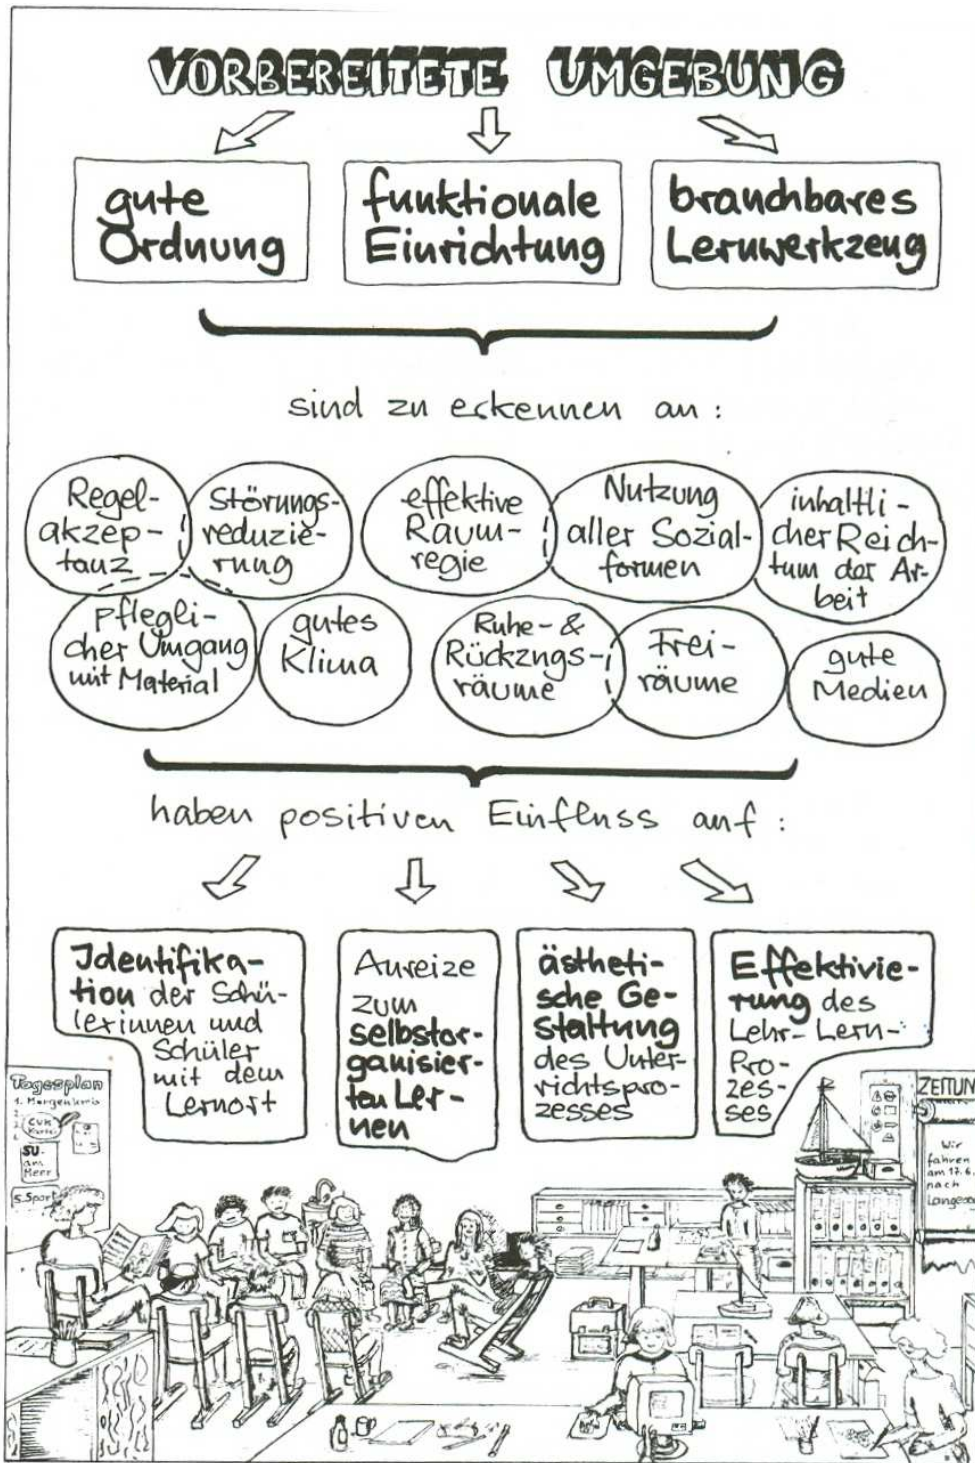 VORBEREITETE UMGEBUNG
gute
Ordnung
funktionale
Einrichtung
brauchbares
Lernwerkzeug
sind zu erkennen an:
Regel-
akzep-
tanz
Störungs-
reduzie-
rung
effektive
Raum-
regie
Nutzung
aller Sozial-
formen
inhaltli-
cher Reich-
tum der Ar-
beit
pflegli-
cher Umgang
mit Material
gutes
Klima
Ruhe- &
Rückzugs-
räume
Frei-
räume
gute
Medien
haben positiven Einfluss auf:
Identifika-
tion der Schü-
lerinnen und
Schüler
mit dem
Lernort
Anreize
zum
selbstor-
ganisier-
ten Ler-
nen
ästheti-
sche Ge-
staltung
des Unter-
richtspro-
zesses
Effektivie-
rung des
Lehr-Lern-
Pro-
zes-
ses
Tagesplan
1. Morgenkreis
SU-
am
Meer
5. Sport
ZEITUN
Wir
fahren
am 17.6.
nach